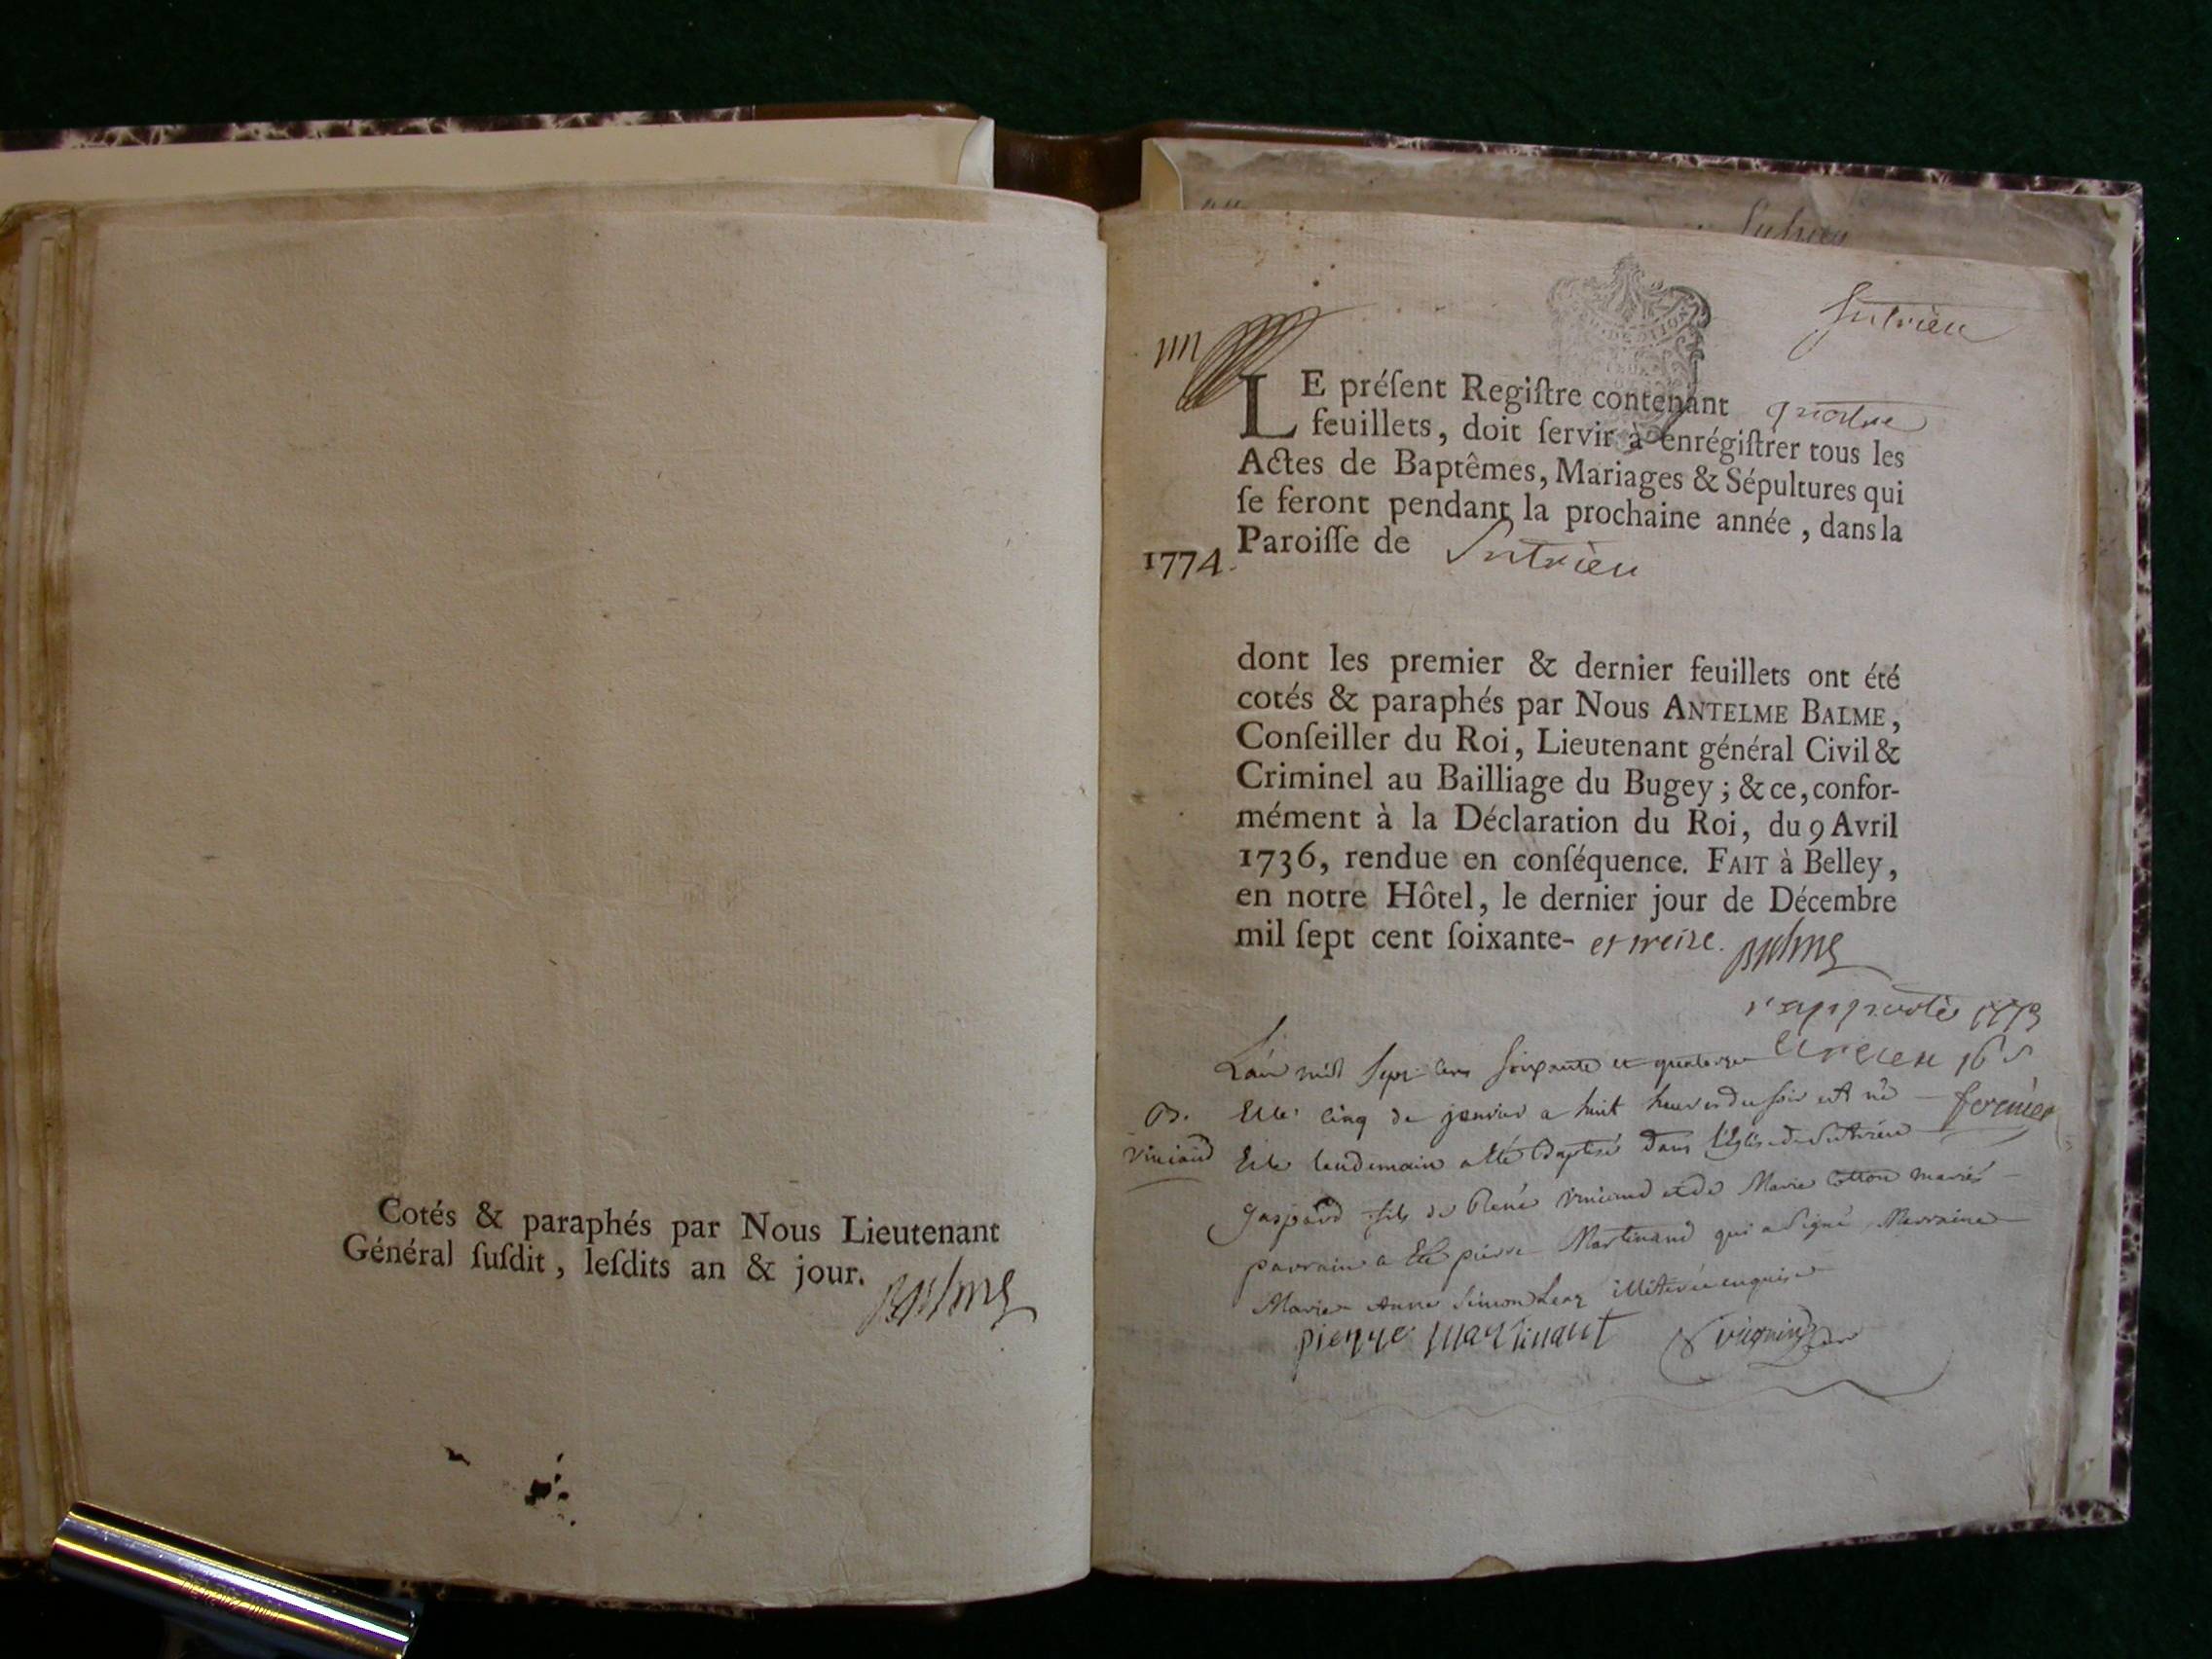 Cotés & paraphés par Nous Lieutenant
Général ſuſdit, leſdits an & jour.
Balme
Sutrieu
LE préſent Regiſtre contenant quatre
feuillets, doit ſervir à enrégiſtrer tous les
Actes de Baptêmes, Mariages & Sépultures qui
ſe feront pendant la prochaine année, dans la
Paroiſſe de Sutrieu
1774.
dont les premier & dernier feuillets ont été
cotés & paraphés par Nous ANTELME BALME,
Conſeiller du Roi, Lieutenant général Civil &
Criminel au Bailliage du Bugey; & ce, confor-
mément à la Déclaration du Roi, du 9 Avril
1736, rendue en conſéquence. FAIT à Belley,
en notre Hôtel, le dernier jour de Décembre
mil ſept cent ſoixante- et treize. Balme
rapporté 1773
L'an mil sept cens soixante et quatorze
B. Et le cinq de janvier a huit heures du soir est né
vinciand Et le lendemain a été Baptisé dans l'Eglise de Sutrieu
gaspard fils de René vinciand et de Marie Cotton mariés
parrain a été pierre Martinand qui a signé Marraine
Marie Anne illiterée enquise
pierre martinant